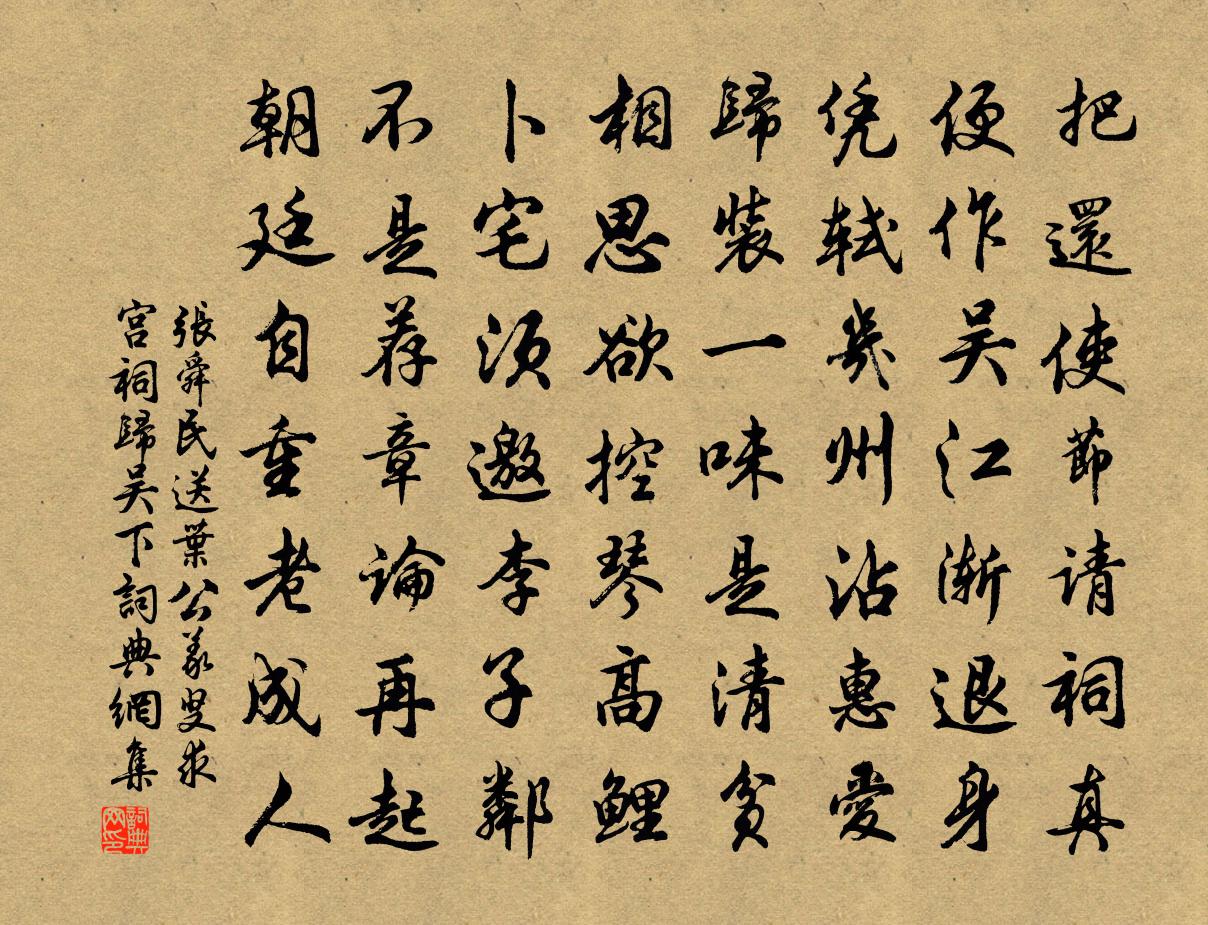 把還使節请祠真
便作吴江渐退身
凭轼幾州沾惠愛
歸裝一味是清貧
相思欲控琴高鯉
卜宅须邀李子鄰
不是荐章論再起
朝廷自重老成人
張舜民送葉公羲叟求
宮祠歸吴下詞典網集
詞典网印